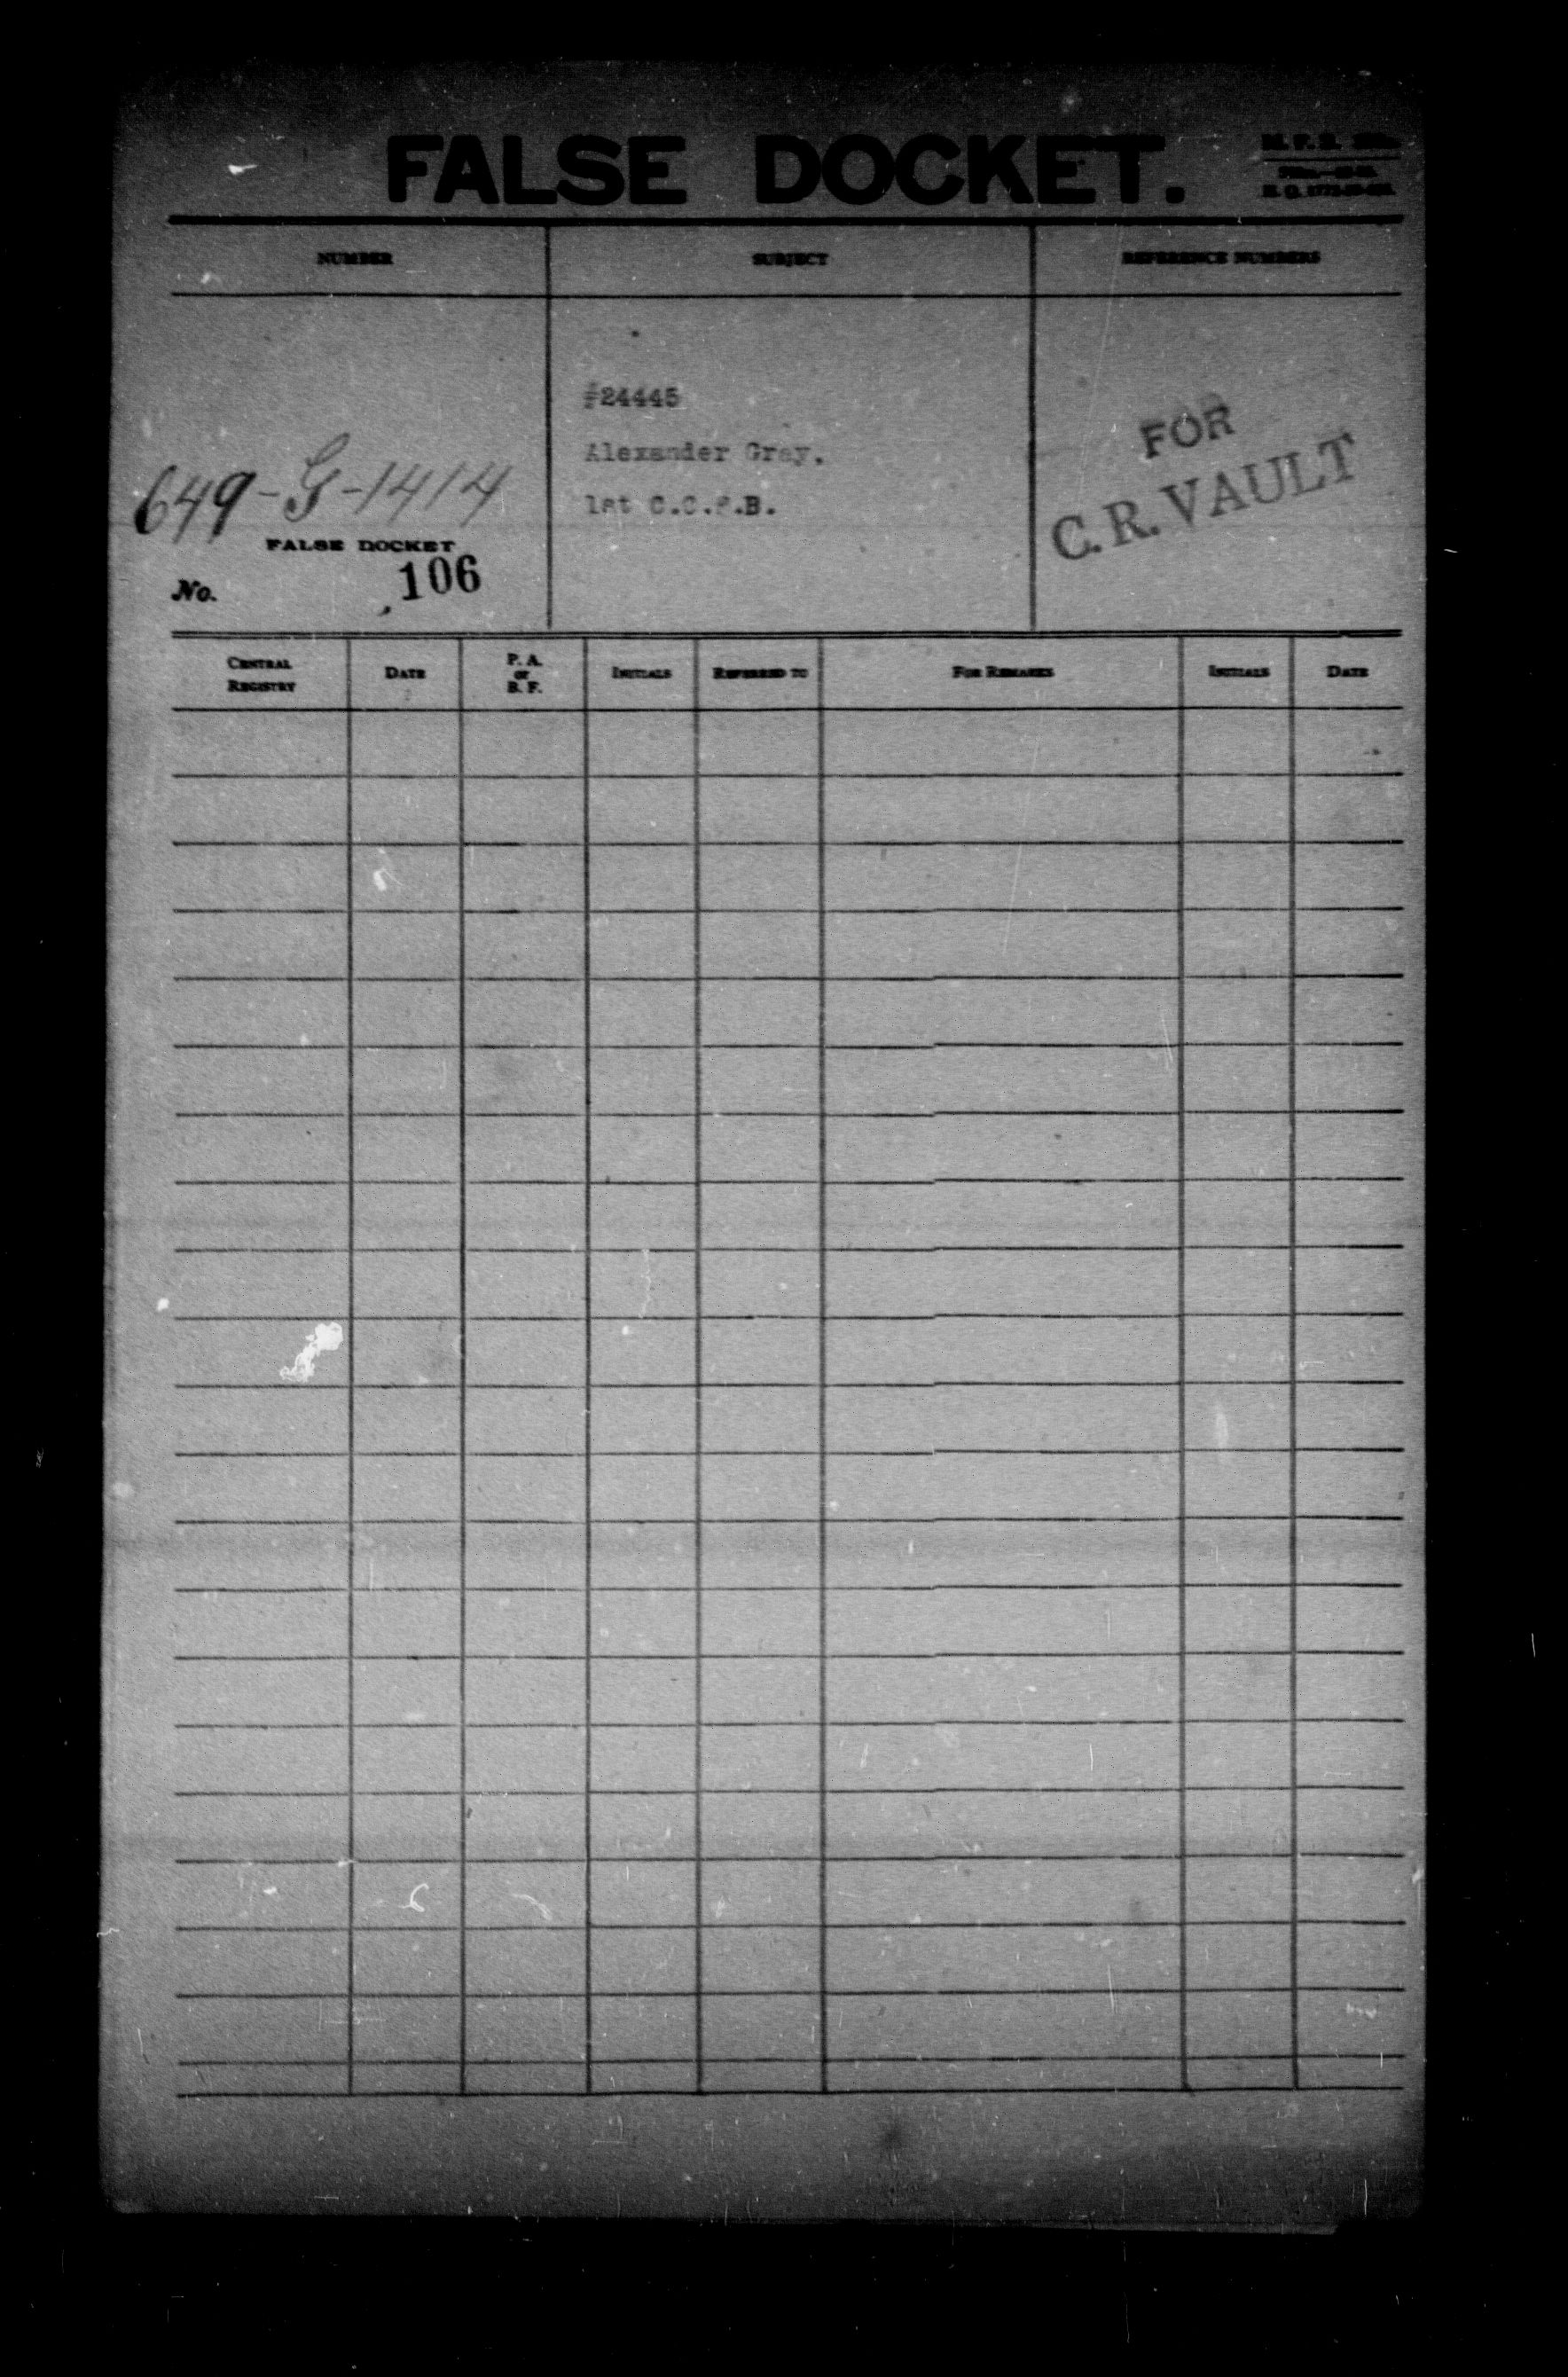 FALSE DOCKET.
NUMBER
SUBJECT
REFERENCE NUMBERS
649-G-1414
FALSE DOCKET
No. 106
#24445
Alexander Gray.
1st C.C.R.B.
FOR
C. R. VAULT
CENTRAL REGISTRY
DATE
P. A. or B. F.
INITIALS
REFERRED TO
FOR REMARKS
INITIALS
DATE